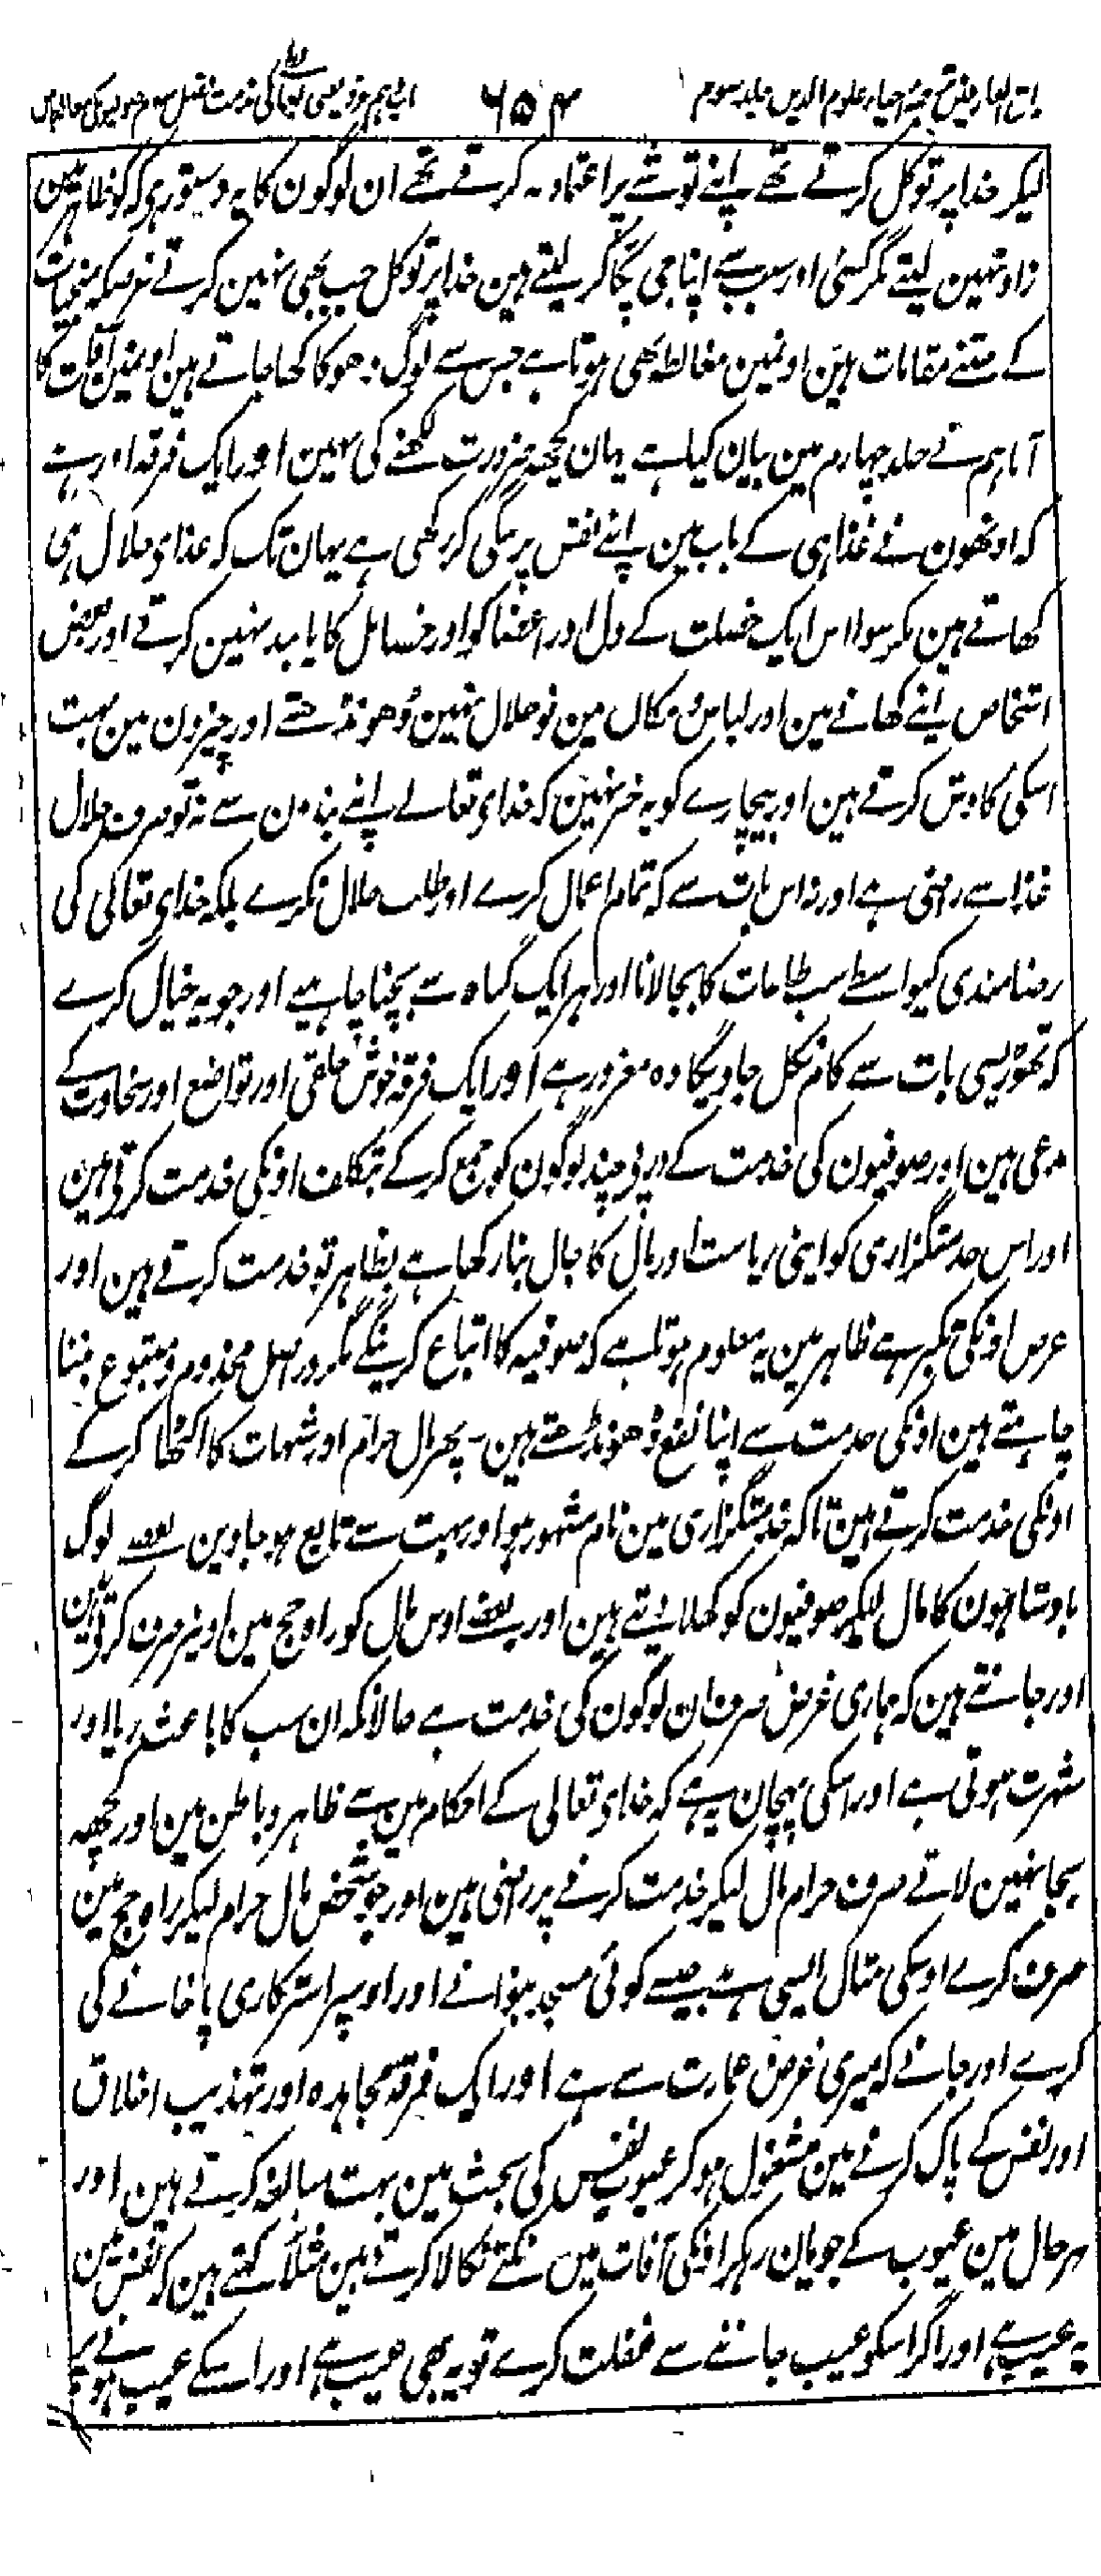 احیاء علوم الدین جلد سوم ۶۵۴
لیکر خدا پر توکل کرتے تھے اپنے توشے پر اعتماد نہ کرتے تھے ان لوگون کا یہ دستور ہی کہ گو ظاہر مین
زاد نہین لیتے مگر کسی اور سبب سے اپنا جی پکا کر لیتے ہین خدا پر توکل جب بھی نہین کرتے غرضکہ منجیات
کے جتنے مقامات ہین اونمین مغالطہ بھی ہوتا ہے جس سے لوگ دھوکا کھا جاتے ہین اور ہمنے آفات کا
آنا ہم نے جلد چہارم مین بیان کیا ہے یہان کچھ ضرورت لکھنے کی نہین اور ایک فرقہ اور ہے
کہ اونھون نے غذا ہی کے باب مین اپنے نفس پر تنگی کر رکھی ہے یہان تک کہ غذای حلال ہی
کھاتے ہین مگر سوا اس ایک خصلت کے دل اور اعضا کو اور خصائل کا پابند نہین کرتے اور بعض
اشخاص اپنے کھانے مین اور لباس و مکان مین تو حلال نہین ڈھونڈھتے اور چیزون مین بہت
اسکی کاوش کرتے ہین اور بیچارے کو یہ خبر نہین کہ خدای تعالے اپنے بندون سے نہ تو صرف حلال
غذا سے راضی ہے اور نہ اس بات سے کہ تمام اعمال کرے اور طلب حلال نکرے بلکہ خدای تعالی کی
رضامندی کیواسطے سب طاعات کا بجالانا اور ہر ایک گناہ سے بچنا چاہیے اور جو یہ خیال کرے
کہ تھوڑیسی بات سے کام نکل جاویگا وہ مغرور ہے اور ایک فرقہ خوش خلقی اور تواضع اور سخاوت کے
مدعی ہین اور صوفیون کی خدمت کے درپی چند لوگون کو جمع کرکے بتکلف اونکی خدمت کرتے ہین
اور اس خدمتگزاری کو اپنی ریاست اور مال کا جال بنا رکھا ہے بظاہر تو خدمت کرتے ہین اور
غرض اونکی تکبر ہے ظاہر مین یہ معلوم ہوتا ہے کہ صوفیہ کا اتباع کرینگے مگر در اصل مخدوم و متبوع بننا
چاہتے ہین اونکی خدمت سے اپنا نفع ڈھونڈھتے ہین - پھر مال حرام اور شبہات کا اکٹھا کرکے
اونکی خدمت کرتے ہین تاکہ خدمتگزاری مین نام مشہور ہو اور بہت سے تابع ہو جاوین بعضے لوگ
بادشاہون کا مال لیکر صوفیون کو کھلادیتے ہین اور بعضے اوس مال کو راہ حج مین اونپر صرف کرتے ہین
اور جانتے ہین کہ ہماری غرض صرف ان لوگون کی خدمت ہے حالانکہ ان سب کا باعث ریا اور
شہرت ہوتی ہے اور اسکی پہچان یہ ہے کہ خدای تعالی کے احکام مین سے ظاہر و باطن مین اور کچھ
بجا نہین لاتے صرف حرام مال لیکر خدمت کرنے پر راضی ہین اور جو شخص مال حرام لیکر راہ حج مین
صرف کرے اوسکی مثال ایسی ہے جیسے کوئی مسجد بنوائے اور اوسپر استرکاری پاخانے کی
کرے اور جانے کہ میری غرض عمارت سے ہے اور ایک فرقہ مجاہدہ اور تہذیب اخلاق
اور نفس کے پاک کرنے مین مشغول ہوکر عیوب نفس کی بحث مین بہت مبالغہ کرتے ہین اور
ہر حال مین عیوب کے جویان رہکر اونکی آفات مین نکتے نکالا کرتے ہین مثلاً کہتے ہین کہ نفس مین
یہ عیب ہے اور اگر اسکو عیب جاننے سے غفلت کرے تو یہ بھی عیب ہے اور اسکے عیب ہونے پر